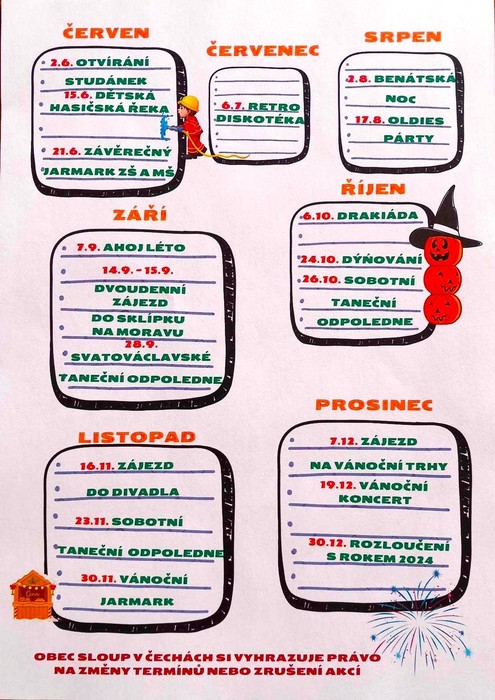 ČERVEN
2.6. OTVÍRÁNÍ
STUDÁNEK
15.6. DĚTSKÁ
HASIČSKÁ ŘEKA
21.6. ZÁVĚREČNÝ
JARMARK ZŠ A MŠ
ČERVENEC
6.7. RETRO
DISKOTÉKA
SRPEN
2.8. BENÁTSKÁ
NOC
17.8. OLDIES
PÁRTY
ZÁŘÍ
7.9. AHOJ LÉTO
14.9. - 15.9.
DVOUDENNÍ
ZÁJEZD
DO SKLÍPKU
NA MORAVU
28.9.
SVATOVÁCLAVSKÉ
TANEČNÍ ODPOLEDNE
ŘÍJEN
6.10. DRAKIÁDA
24.10. DÝŇOVÁNÍ
26.10. SOBOTNÍ
TANEČNÍ
ODPOLEDNE
LISTOPAD
16.11. ZÁJEZD
DO DIVADLA
23.11. SOBOTNÍ
TANEČNÍ ODPOLEDNE
30.11. VÁNOČNÍ
JARMARK
PROSINEC
7.12. ZÁJEZD
NA VÁNOČNÍ TRHY
19.12. VÁNOČNÍ
KONCERT
30.12. ROZLOUČENÍ
S ROKEM 2024
OBEC SLOUP V ČECHÁCH SI VYHRAZUJE PRÁVO
NA ZMĚNY TERMÍNŮ NEBO ZRUŠENÍ AKCÍ